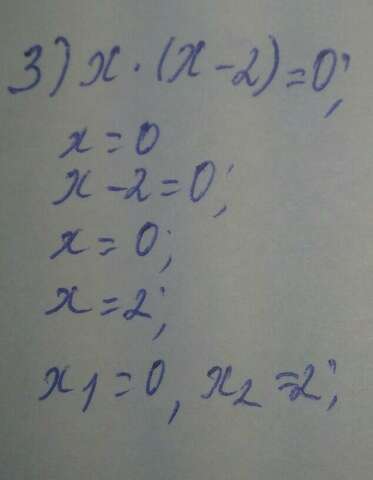 3) x · (x - 2) = 0;
x = 0
x - 2 = 0;
x = 0;
x = 2;
x₁ = 0, x₂ = 2;